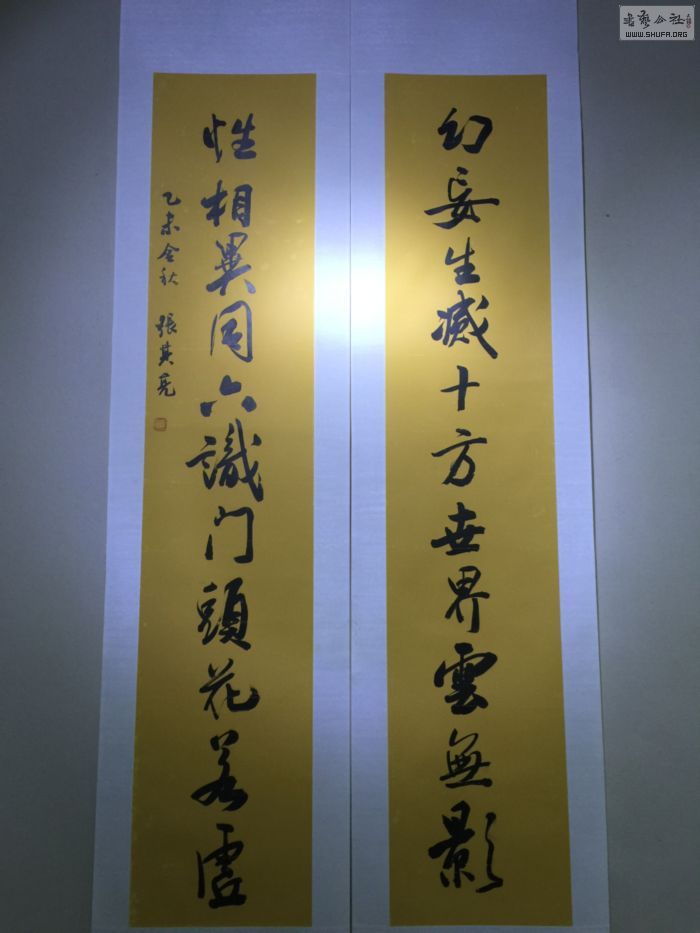 幻妄生滅十方世界雲無影
性相異同六識门頭花若虛
乙未金秋 張其亮
書藝公社
WWW.SHUFA.ORG